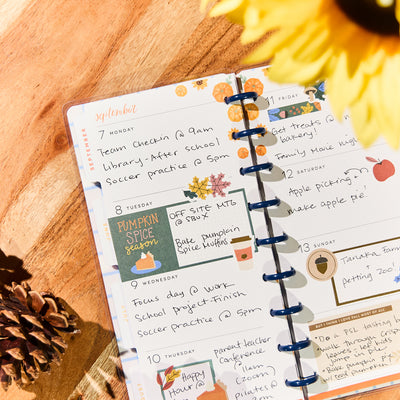 september
SEPTEMBER
7 MONDAY
Team Checkin @ 9am
Library - After school
Soccer practice @ 5pm
8 TUESDAY
PUMPKIN
SPICE
season
OFF SITE MTG
@
Bake pumpkin
Spice Muffins
9 WEDNESDAY
Focus day @ work
School project-Finish
Soccer practice @ 5pm
10 THURSDAY
Happy
Hour @
parent teacher
Conference
@ 11am
(zoom)
pilates
@
11 FRIDAY
Get treats @
bakery!
Family Movie Nigh
12 SATURDAY
Apple picking &
make apple pie
13 SUNDAY
Tanaka Farm
+
petting Zoo!
BUT I THINK I LOVE FALL MOST OF ALL
Do a PSL tasting
walk through
leaves - let kids
jump in pile
Bake pumpkin
seed pumpkin